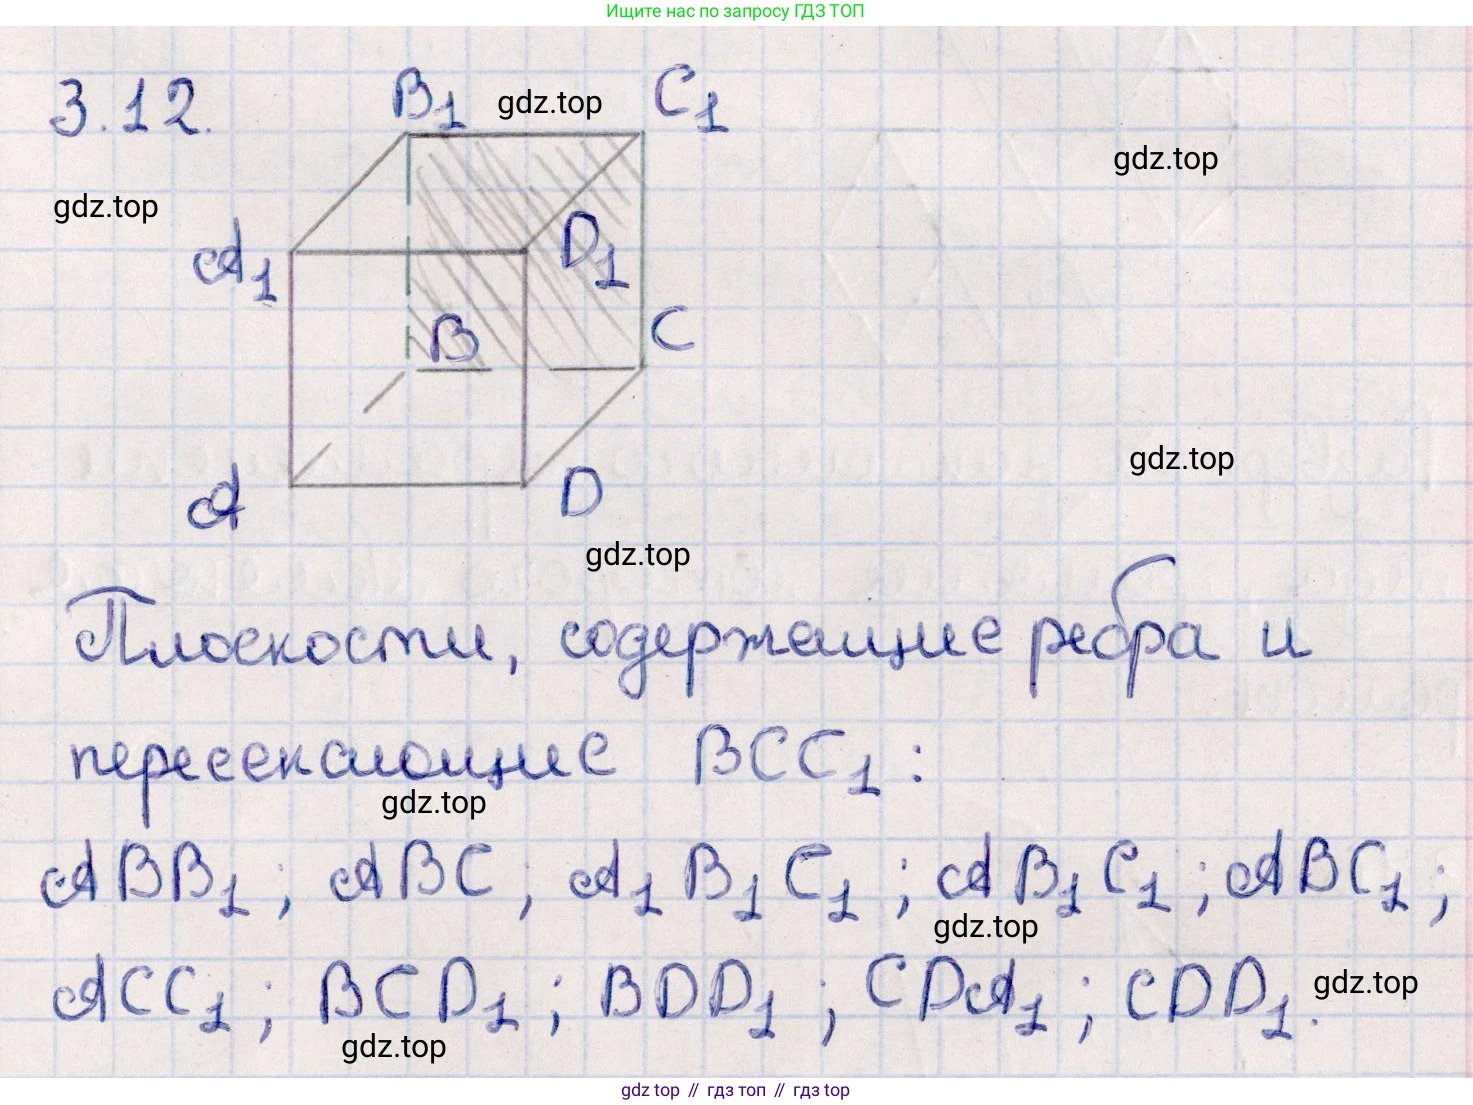 Ищите нас по запросу ГДЗ ТОП
3.12.
B₁
gdz.top
C₁
gdz.top
gdz.top
A₁
D₁
B
C
gdz.top
A
D
gdz.top
Плоскости, содержащие ребра и
пересекающие BCC₁:
gdz.top
ABB₁; ABC; A₁B₁C₁; AB₁C₁; ABC₁;
gdz.top
ACC₁; BCD₁; BDD₁; CDA₁; CDD₁.
gdz.top
gdz.top
gdz top // гдз топ // гдз top